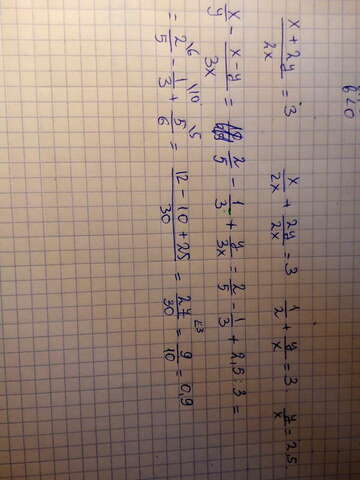 (x+2y)/2x = 3   x/2x + 2y/2x = 3   1/2 + y/x = 3   y/x = 2,5
x/y - (x-y)/3x = 2/5 - 1/3 + y/3x = 2/5 - 1/3 + 2,5:3 =
= 2\6/5 - 1\10/3 + 5\5/6 = (12-10+25)/30 = 27/30 = 9/10 = 0,9